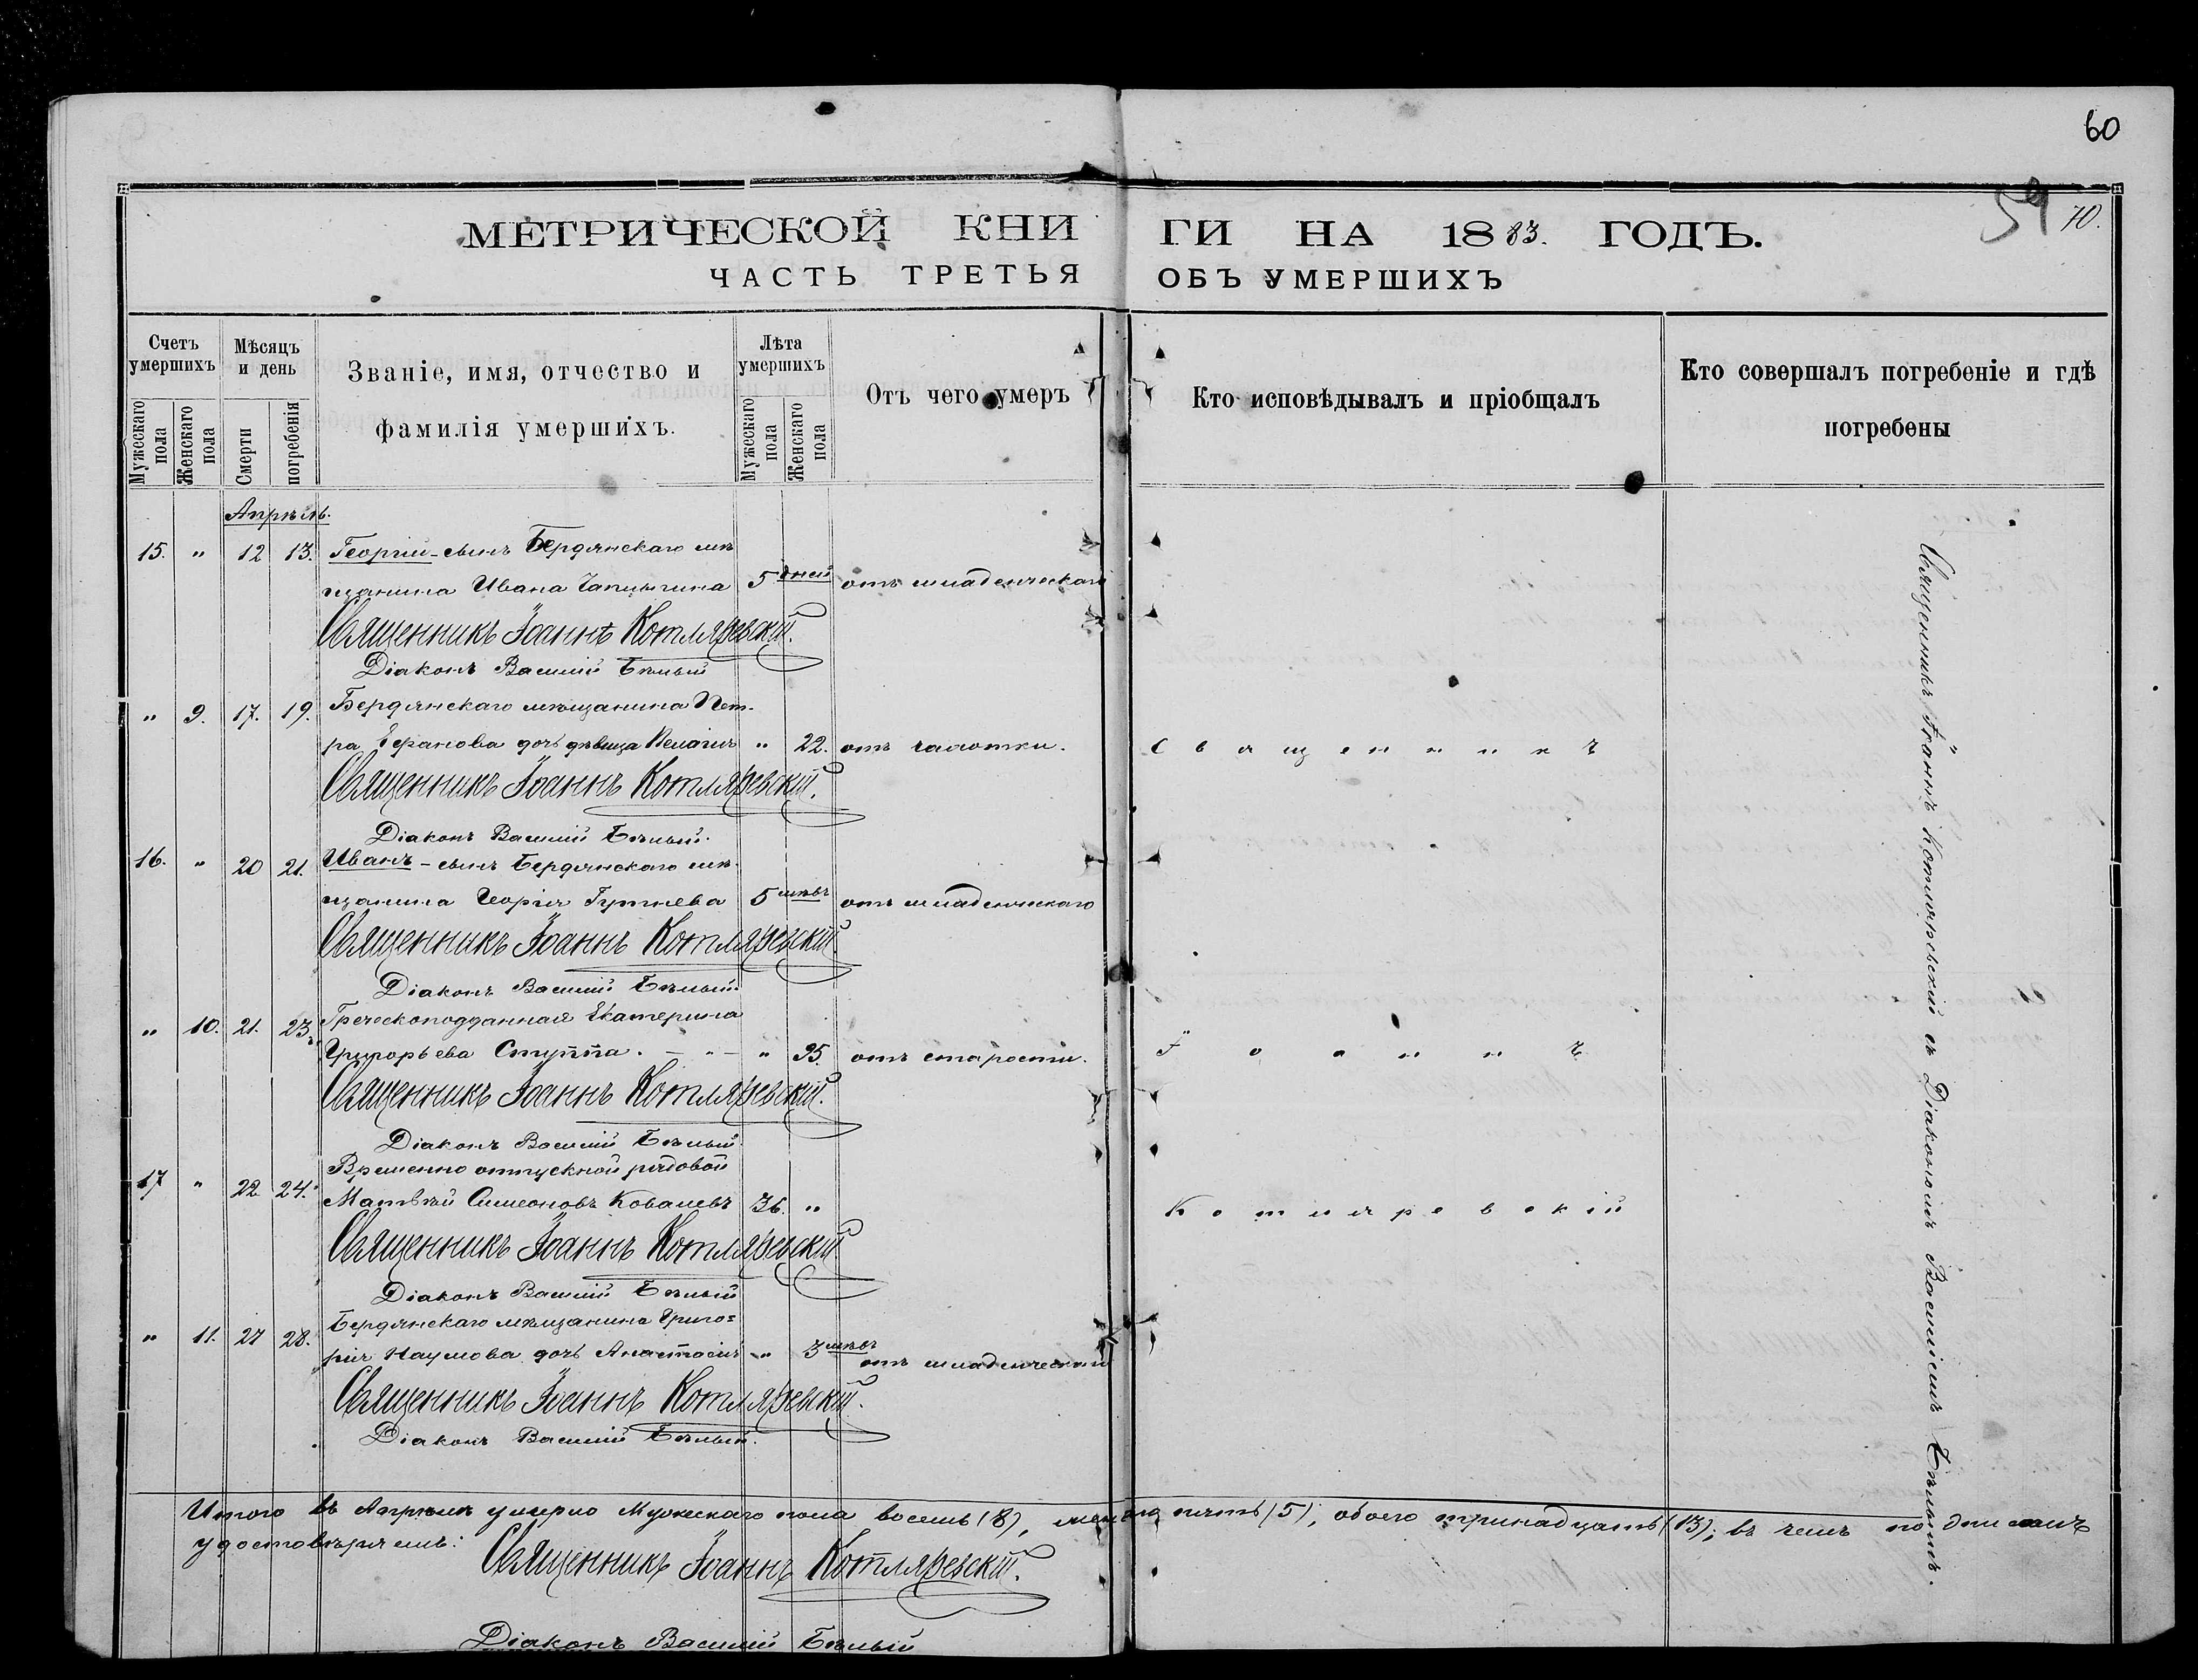 60
59 70.
МЕТРИЧЕСКОЙ КНИГИ НА 1883. ГОДЪ.
ЧАСТЬ ТРЕТЬЯ ОБЪ УМЕРШИХЪ
Счетъ умершихъ
Мужескаго пола
Женскаго пола
Мѣсяцъ и день
Смерти
погребенія
Званіе, имя, отчество и
фамилія умершихъ.
Лѣта умершихъ
Мужескаго пола
Женскаго пола
Отъ чего умеръ
Кто исповѣдывалъ и пріобщалъ
Кто совершалъ погребеніе и гдѣ
погребены
Апрѣль.
15. " 12 13. Георгій - сынъ Бердянскаго мѣ
щанина Ивана Чапыгина 5 дней отъ младенческаго
Священникъ Іоаннъ Котляревскій.
Діаконъ Василій Бѣлый
" 9. 17. 19. Бердянскаго мѣщанина Пет-
ра Ефанова дочь дѣвица Пелагія " 22. отъ чахотки. Священникъ
Священникъ Іоаннъ Котляревскій.
Діаконъ Василій Бѣлый.
16. " 20 21. Иванъ - сынъ Бердянскаго мѣ-
щанина Георгія 5 мѣс. отъ младенческаго
Священникъ Іоаннъ Котляревскій
Діаконъ Василій Бѣлый.
" 10. 21. 23. Греческоподданная Екатерина
Григорьева Ступпа. - " - " 95. отъ старости. Іоаннъ
Священникъ Іоаннъ Котляревскій.
Діаконъ Василій Бѣлый.
17 " 22 24. Временно отпускной рядовой
Матвѣй Симеоновъ Ковалевъ 36. " Котляревскій
Священникъ Іоаннъ Котляревскій
Діаконъ Василій Бѣлый
" 11. 27 28. Бердянскаго мѣщанина Григо=
рія Наумова дочь Анастасія - " 3 мѣс. отъ младенческаго
Священникъ Іоаннъ Котляревскій.
Діаконъ Василій Бѣлый.
Священникъ Іоаннъ Котляревскій съ Діакономъ Василіемъ Бѣлымъ.
Итого въ Апрѣлѣ умерло Мужескаго пола восемь (8), женска пять (5); обоего тринадцать (13); въ чемъ подписомъ
удостовѣряемъ:
Священникъ Іоаннъ Котляревскій.
Діаконъ Василій Бѣлый